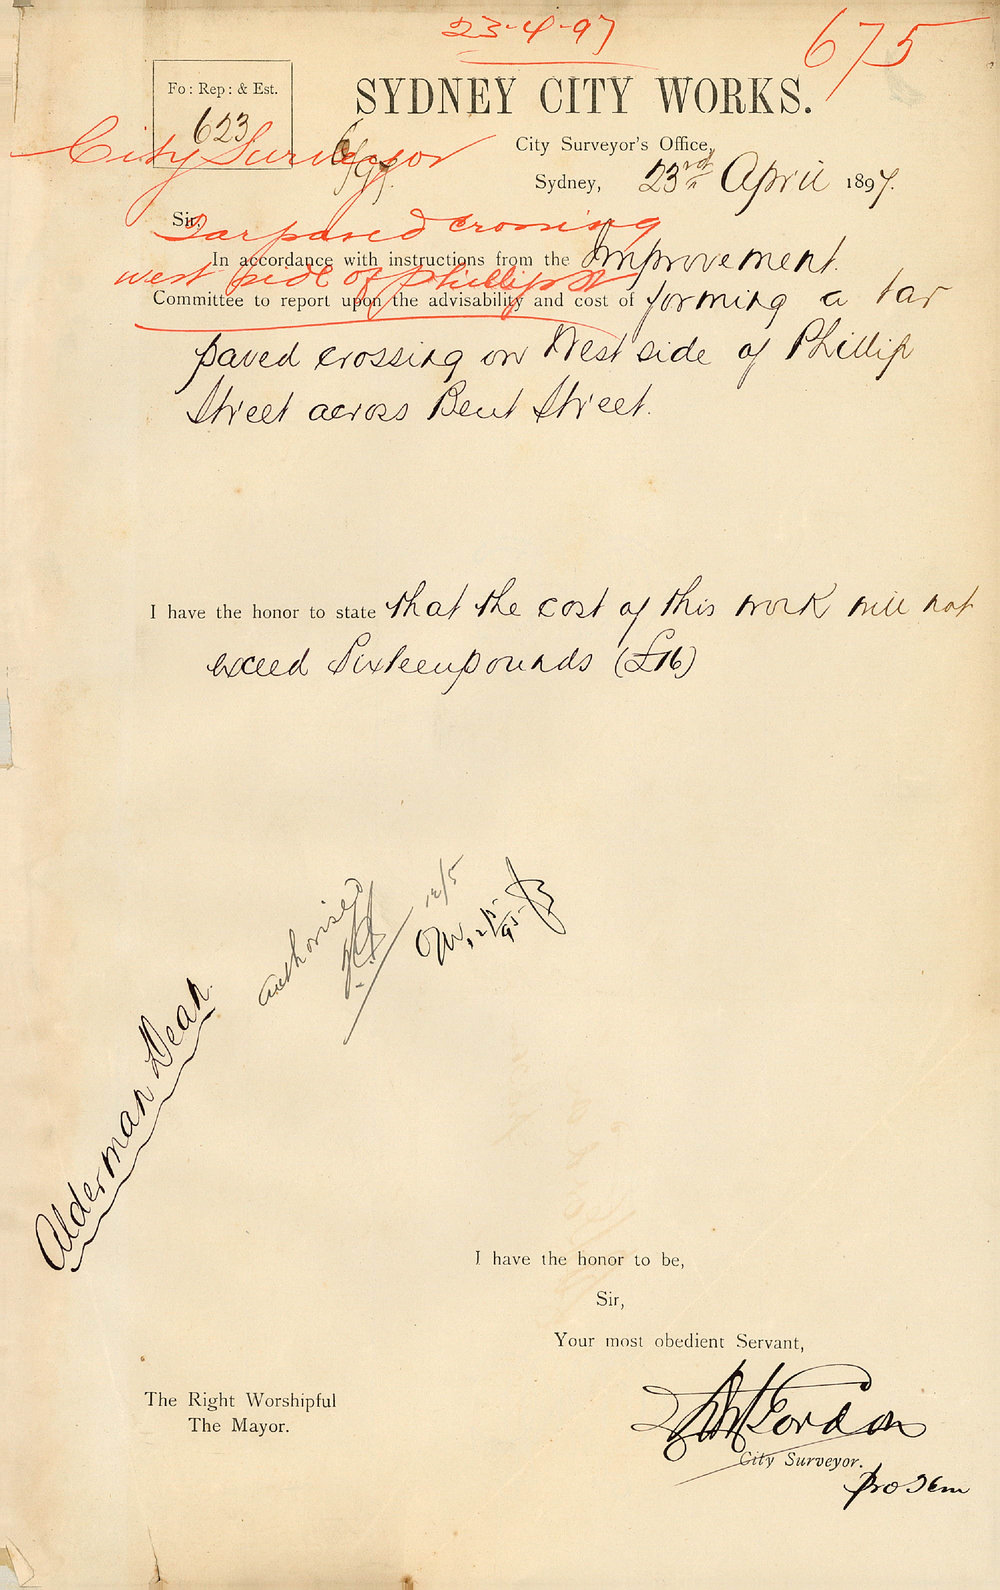 23-4-97
675
Fo: Rep: & Est.
623
SYDNEY CITY WORKS.
City Surveyor
City Surveyor's Office,
Sydney, 23rd April 1897.
Sir,
Tarpaved crossing
In accordance with instructions from the Improvement
west side of Phillip St
Committee to report upon the advisability and cost of forming a tar
paved crossing on West side of Phillip
Street across Bent Street.
I have the honor to state that the cost of this work will not
exceed Sixteen pounds (£16)
authorised
12/5
Alderman Dean
I have the honor to be,
Sir,
Your most obedient Servant,
The Right Worshipful
The Mayor.
Gordon
City Surveyor.
pro tem